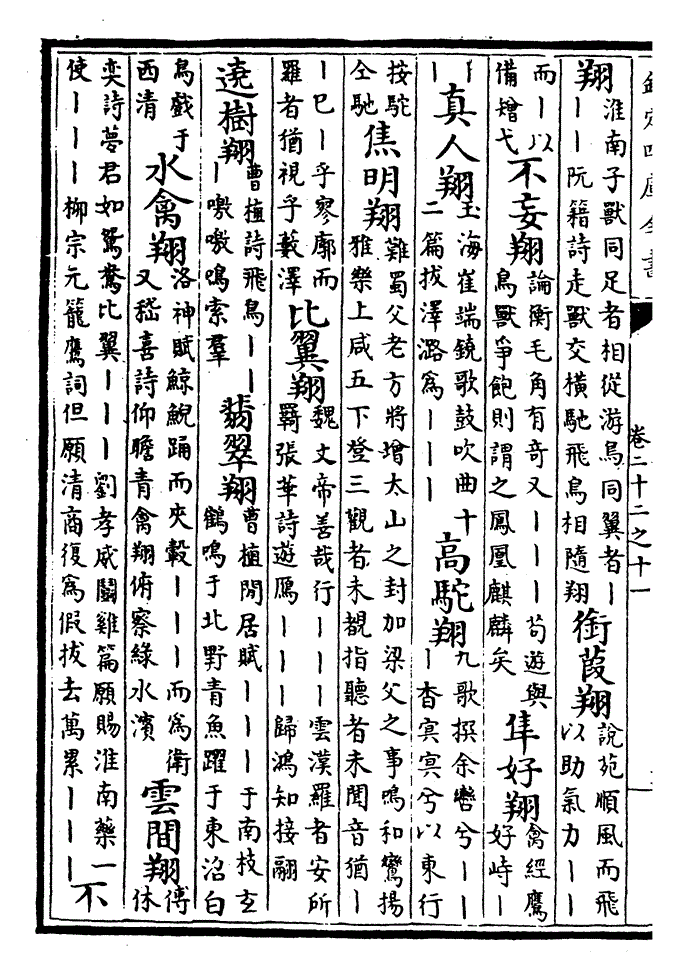 欽定四庫全書
卷二十二之十一
翔
淮南子獸同足者相從游鳥同翼者丨
丨丨阮籍詩走獸交橫馳飛鳥相隨翔
銜葭翔
說苑順風而飛
以助氣力丨丨
而丨以
備矰弋
不妄翔
論衡毛角有奇又丨丨丨苟遊與
鳥獸爭飽則謂之鳳凰麒麟矣
隼好翔
禽經鷹
好峙丨
丨
丨
真人翔
玉海崔端鐃歌鼓吹曲十
二篇拔澤潞爲丨丨丨
高駝翔
九歌撰余轡兮丨丨
丨杳冥冥兮以東行
按駝
仝馳
焦明翔
難蜀父老方將增太山之封加梁父之事鳴和鸞揚
雅樂上咸五下登三觀者未覩指聽者未聞音猶丨
丨已丨乎寥廓而
羅者猶視乎藪澤
比翼翔
魏文帝善哉行丨丨丨雲漢羅者安所
羇張華詩遊鴈丨丨丨歸鴻知接翮
遶樹翔
曹植詩飛鳥丨丨
丨噭噭鳴索羣
翡翠翔
曹植閒居賦丨丨丨于南枝玄
鶴鳴于北野青魚躍于東沼白
鳥戲于
西清
水禽翔
洛神賦鯨鯢踊而夾轂丨丨丨而爲衛
又嵇喜詩仰瞻青禽翔俯察綠水濱
雲間翔
傅
休
奕詩夢君如鴛鴦比翼丨丨丨劉孝威鬭雞篇願賜淮南藥一
使丨丨丨柳宗元籠鷹詞但願清商復爲假拔去萬累丨丨丨
不